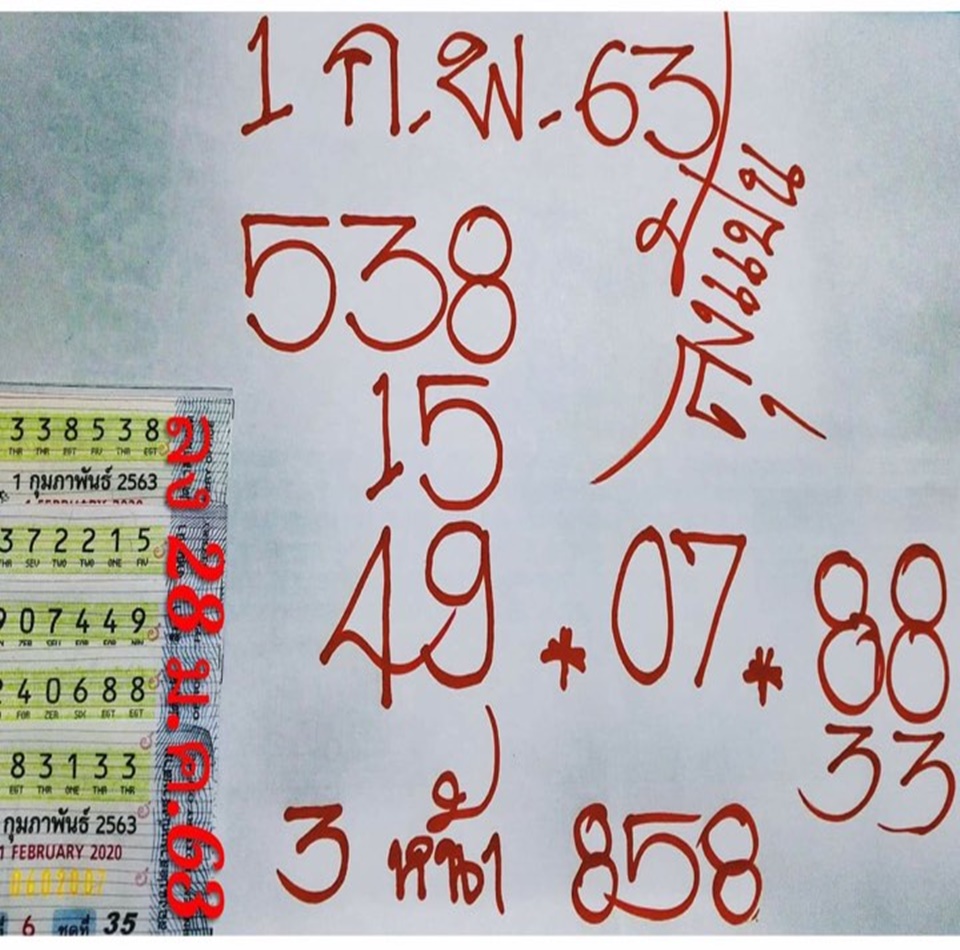 1 ก.พ. 63
538
15
49 * 07 * 88
33
3 หน้า 858
338538
THR THR EGT FIV THR EGT
1 กุมภาพันธ์ 2563
1 FEBRUARY 2020
372215
THR SEV TWO TWO ONE FIV
907449
240688
FOR ZER SIX EGT EGT
83133
EGT THR ONE THR THR
กุมภาพันธ์ 2563
1 FEBRUARY 2020
6 ชุดที่ 35
ลง 28 ม.ค.63